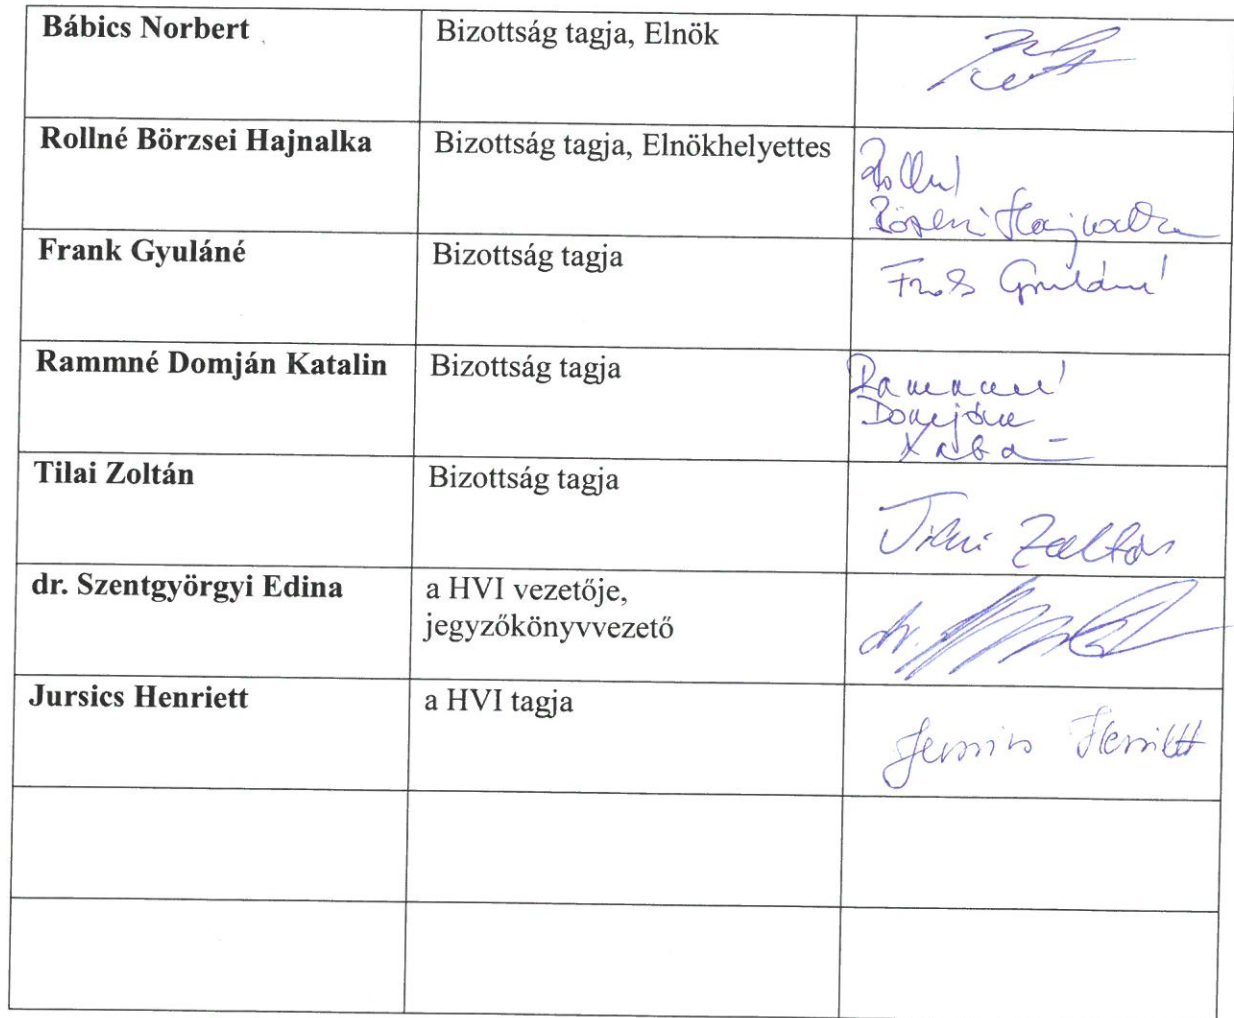 Bábics Norbert Bizottság tagja, Elnök
Rollné Börzsei Hajnalka Bizottság tagja, Elnökhelyettes
Rollné
Börzsei Hajnalka
Frank Gyuláné Bizottság tagja
Frank Gyuláné
Rammné Domján Katalin Bizottság tagja
Rammné
Domján
Tilai Zoltán Bizottság tagja
Tilai Zoltán
dr. Szentgyörgyi Edina a HVI vezetője,
jegyzőkönyvvezető
dr.
Jursics Henriett a HVI tagja
Jursics Henriett